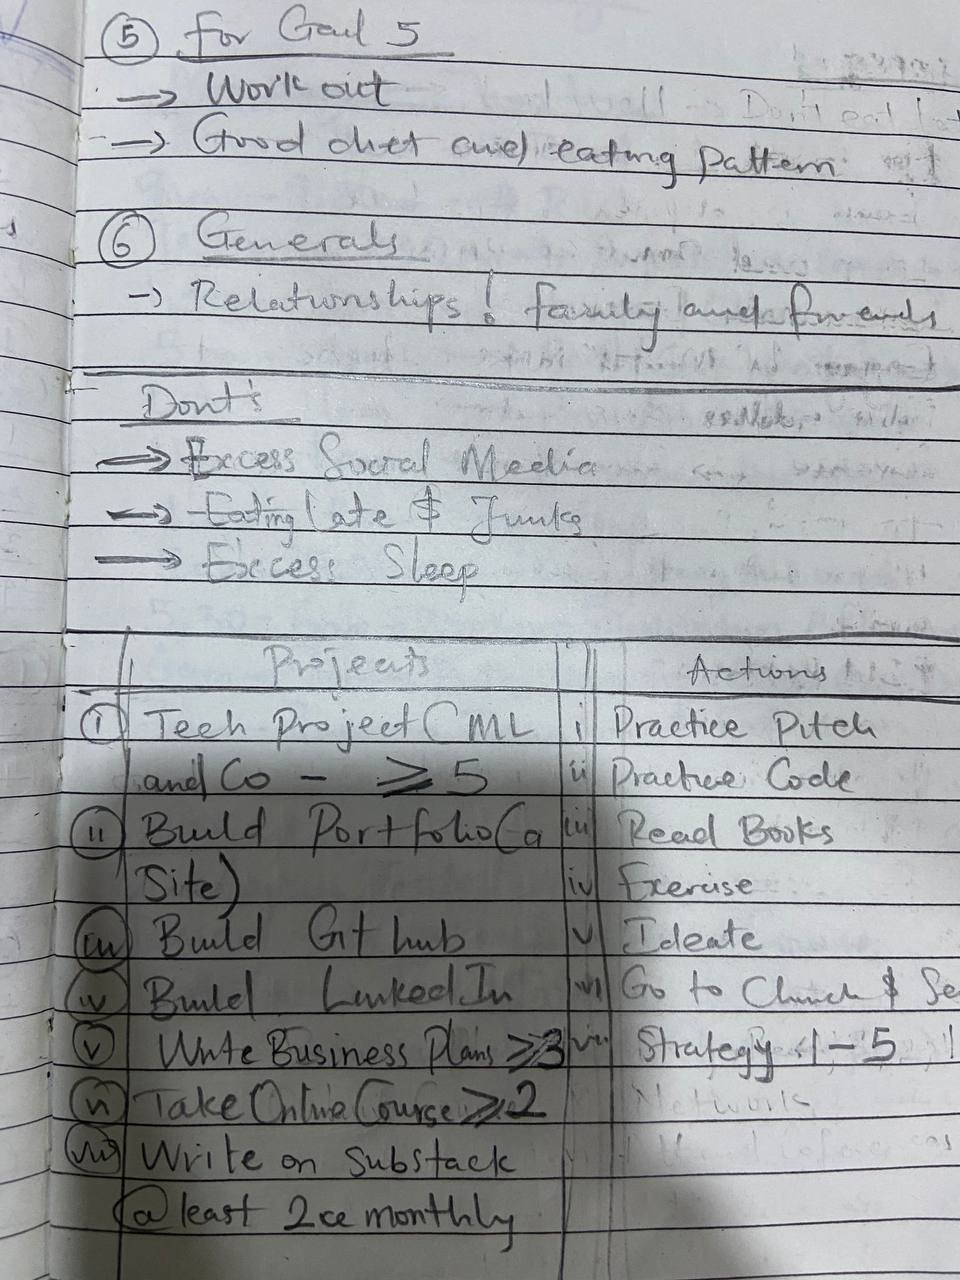 ⑤ For Goal 5
→ Work out
→ Good diet and eating pattern
⑥ Generals
→ Relationships! family and friends
Dont's
→ Excess Social Media
→ Eating late & Junks
→ Excess Sleep
Projects Actions
i Tech Project (ML i Practice Pitch
and Co - ≥ 5 ii Practice Code
ii Build Portfolio (a iii Read Books
Site) iv Exercise
iii Build Github v Ideate
iv Build LinkedIn vi Go to Church &
v Write Business Plans ≥3 vii Strategy 1-5
vi Take Online Course ≥2 Network
vii Write on Substack
@ least 2ce monthly